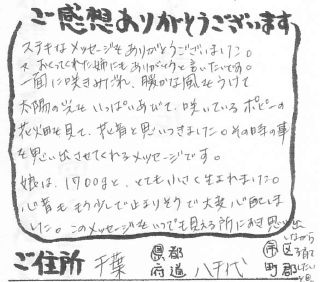 ご感想ありがとうございます
ステキなメッセージをありがとうございました。
おくってくれた姉にもありがとうと言いたいです。
一面に咲きみだれ、暖かな風をうけて
太陽の光をいっぱいあびて、咲いているポピーの
花畑を見て、花音と思いつきました。その時の事
を思い出させてくれるメッセージです。
娘は、1700gと、とても小さく生まれました。
心音も もう少しで止まりそうで大変心配しま
した。このメッセージをいつでも見える所におき思い出
しながら
子育て
したい
ご住所 千葉 都道府県 八千代 市区町郡